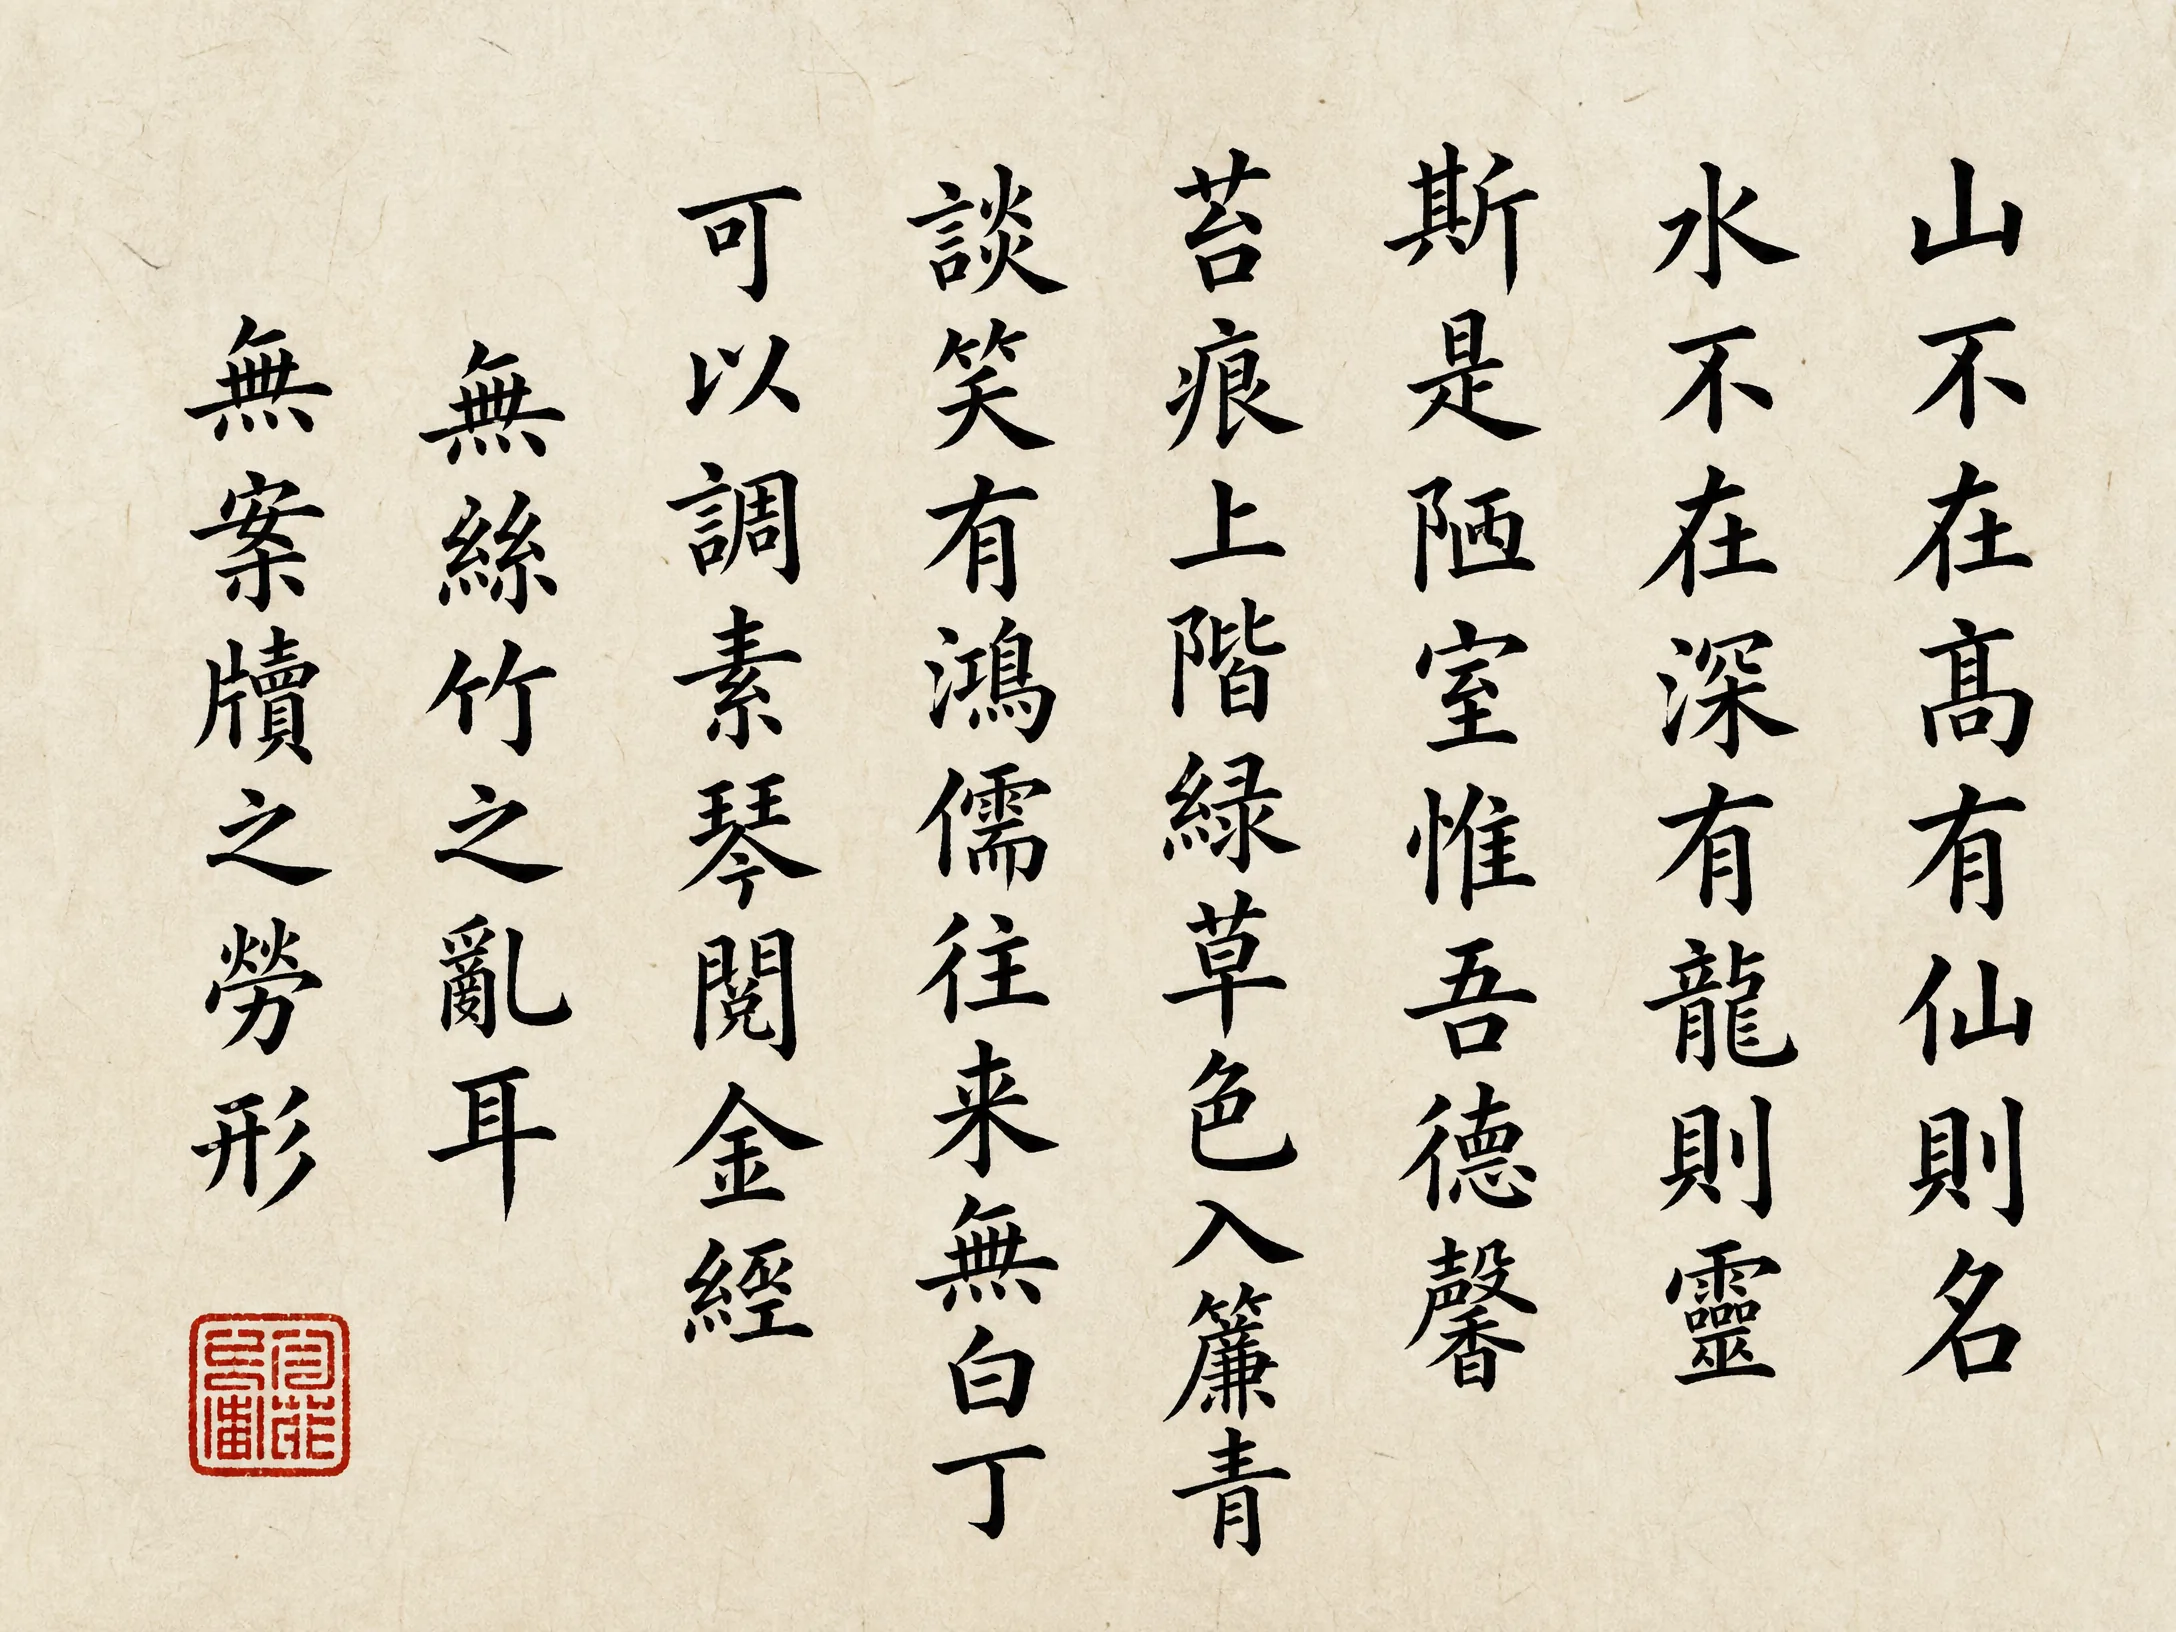 山不在髙有仙則名
水不在深有龍則靈
斯是陋室惟吾德馨
苔痕上階緑草色入簾青
談笑有鴻儒往来無白丁
可以調素琴閱金經
無絲竹之亂耳
無案牘之勞形